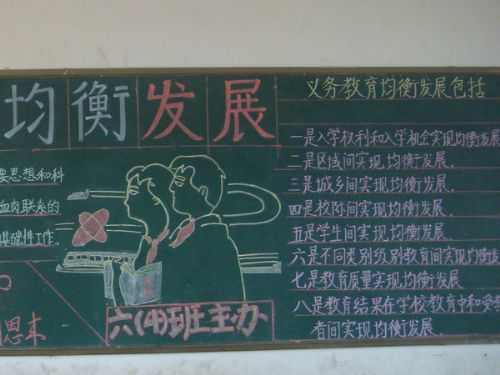 均衡发展
要思想和科
血肉联系的
基础性工作.
思本
六(4)班主办
义务教育均衡发展包括
一是入学权利和入学机会实现均衡发展
二是区域间实现均衡发展.
三是城乡间实现均衡发展.
四是校际间实现均衡发展.
五是学生间实现均衡发展.
六是不同类别级别教育间实现均衡发
七是教育质量实现均衡发展
八是教育结果在学校教育中和受
者间实现均衡发展.